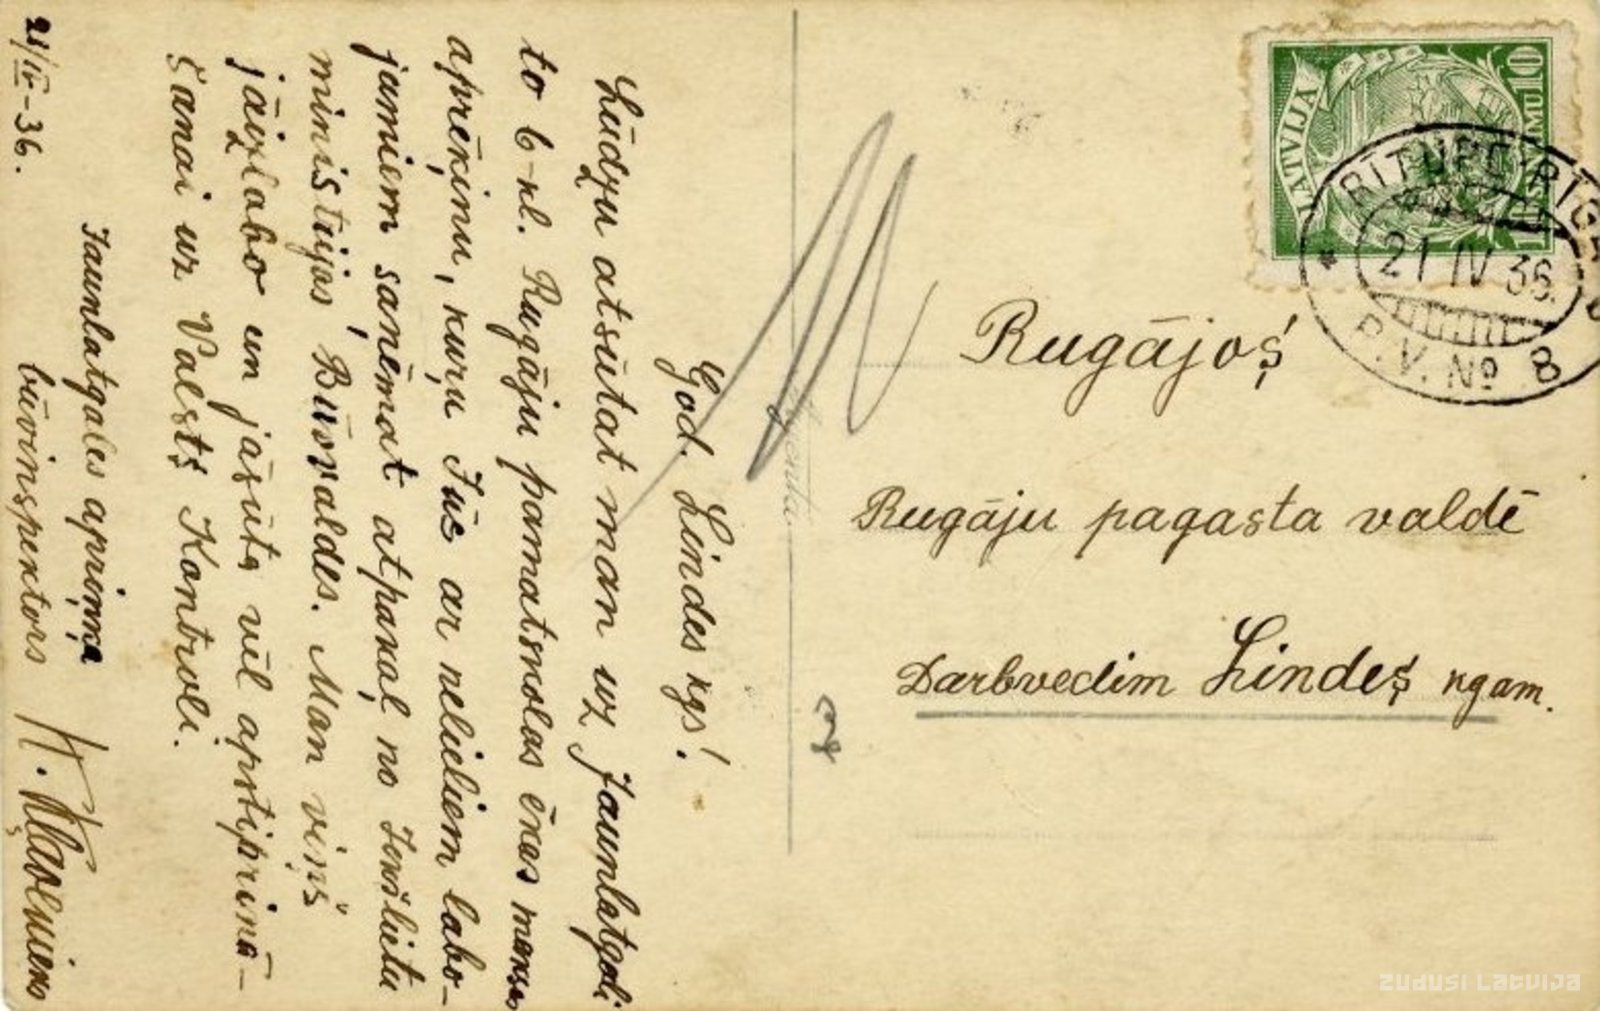 God. Lindes kgs!
Lūdzu atsūtat man uz Jaunlatgali
to 6-kl. Rugāju pamatskolas ēkas maksas
aprēķinu, kuŗu Jūs ar nelieliem labo-
jumiem saņēmāt atpakaļ no Iekšlietu
ministrijas Būvvaldes. Man viņš
jāizlabo un jāsūta vēl apstiprinā-
šanai uz Valsts Kontroli.
Jaunlatgales apriņķa
būvinspektors
21/IV-36.
LATVIJA
10
RITUPE-RĪGA
21 IV 36
P.V. № 8
Rugājos
Rugāju pagasta valdē
Darbvedim Lindes kgam.
zudusi Latvija